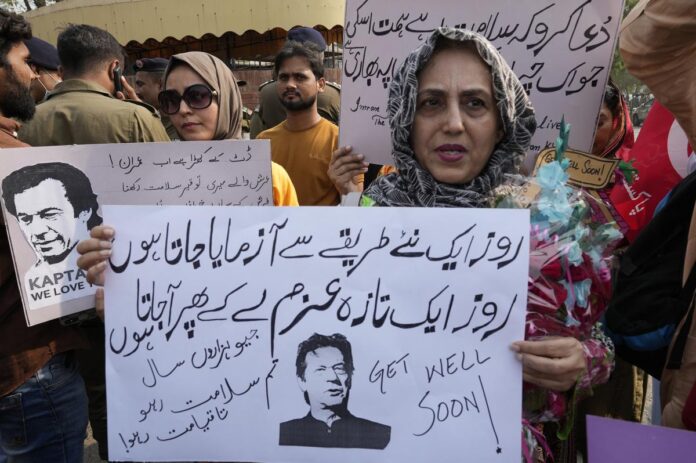 روز ایک نئے طریقے سے آزمایا جاتا ہوں
روز ایک تازہ عزم لے کے پھر آ جاتا ہوں
جیو ہزاروں سال
تم سلامت رہو
تا قیامت رہو!
GET WELL
SOON!
ڈٹ کے کھڑا ہے اب عمران!
والے میری توقیر سلامت رکھنا
KAPTA
WE LOVE Y
دُعا کرو کہ سلامت رہے ہمت اسکی
جو اک چراغ
پہ بھاری ہے
Imran K
The
live
Get Well
SOON